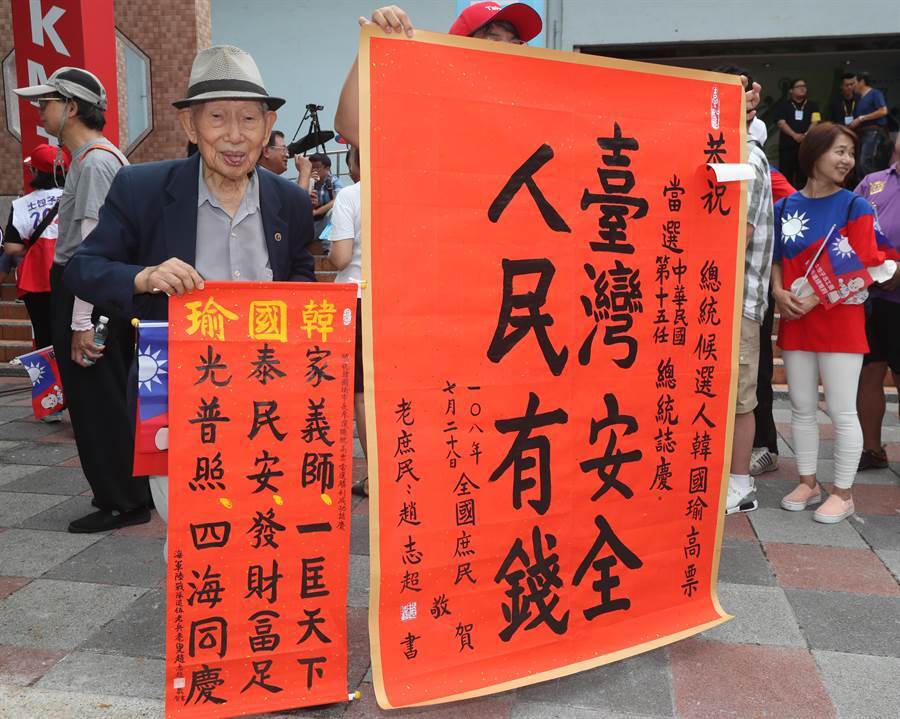 KM
土包子
韓國瑜
家義師、一匡天下
泰民安、發財富足
光普照、四海同慶
海軍陸戰隊退伍老兵老叟趙志超
恭祝
總統候選人韓國瑜高票
當選中華民國第十五任總統誌慶。
臺灣安全
人民有錢
一〇八年七月二十八日全國庶民敬賀
老庶民:趙志超書